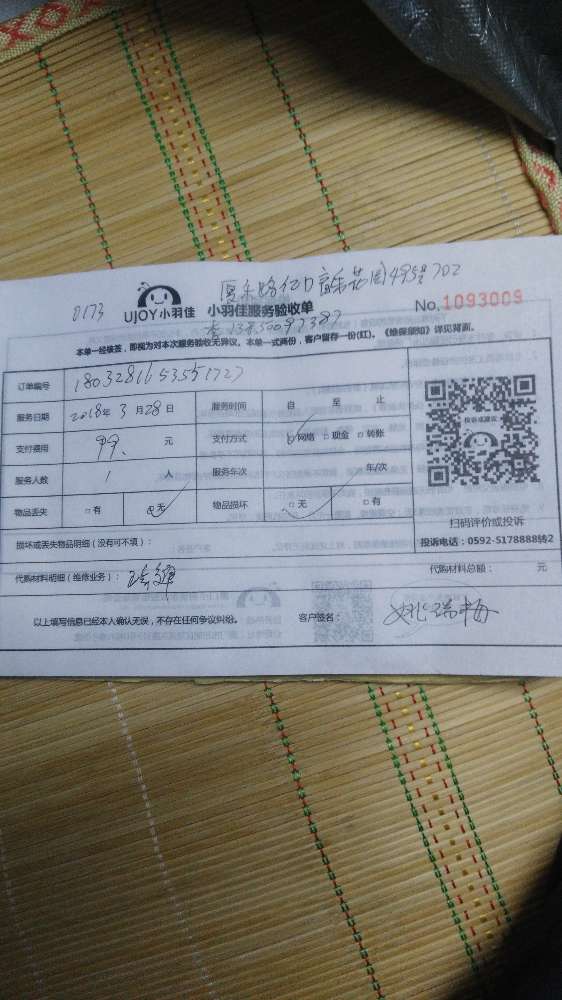 0173
UJOY小羽佳 小羽佳服务验收单 No.1093009
702
本单一经核签，即视为对本次服务验收无异议。本单一式两份，客户留存一份(红)。《维保须知》详见背面。
订单编号
服务日期 2018年3月28日 服务时间 自 至 止
支付费用 99. 元 支付方式 网络 现金 转账
服务人数 1 人 服务车次 车/次
物品丢失 有 无 物品损坏 无 有
投诉或建议
扫码评价或投诉
投诉电话：0592-5178888转2
损坏或丢失物品明细（没有可不填）：
代购材料明细（维修业务）： 代购材料总额： 元
以上填写信息已经本人确认无误，不存在任何争议纠纷。 客户签名： 姚瑞梅